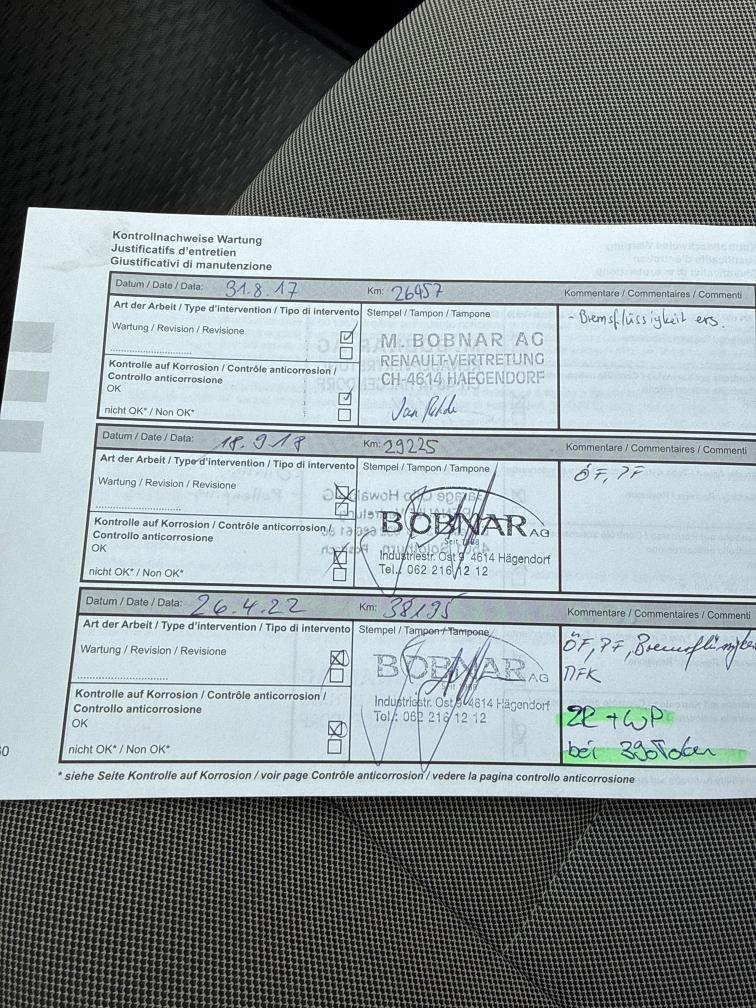 Kontrollnachweise Wartung
Justificatifs d'entretien
Giustificativi di manutenzione
Datum / Date / Data: 31.8.17 Km: 26457 Kommentare / Commentaires / Commenti
Art der Arbeit / Type d'intervention / Tipo di intervento Stempel / Tampon / Tampone - Bremsflüssigkeit ers.
Wartung / Revision / Revisione
M. BOBNAR AG
RENAULT-VERTRETUNG
CH-4614 HAEGENDORF
Kontrolle auf Korrosion / Contrôle anticorrosion /
Controllo anticorrosione
OK
nicht OK* / Non OK*
Datum / Date / Data: 18.9.18 Km: 29225 Kommentare / Commentaires / Commenti
Art der Arbeit / Type d'intervention / Tipo di intervento Stempel / Tampon / Tampone ÖF, PF
Wartung / Revision / Revisione
BOBNAR AG
Industriestr. Ost 9 4614 Hägendorf
Tel.: 062 216 12 12
Kontrolle auf Korrosion / Contrôle anticorrosion /
Controllo anticorrosione
OK
nicht OK* / Non OK*
Datum / Date / Data: 26.4.22 Km: 38195 Kommentare / Commentaires / Commenti
Art der Arbeit / Type d'intervention / Tipo di intervento Stempel / Tampon / Tampone ÖF, PF,
Wartung / Revision / Revisione MFK
BOBNAR AG
Industriestr. Ost 9 4614 Hägendorf
Tel.: 062 216 12 12
Kontrolle auf Korrosion / Contrôle anticorrosion /
Controllo anticorrosione
OK
nicht OK* / Non OK*
ZR + WP
bei
* siehe Seite Kontrolle auf Korrosion / voir page Contrôle anticorrosion / vedere la pagina controllo anticorrosione